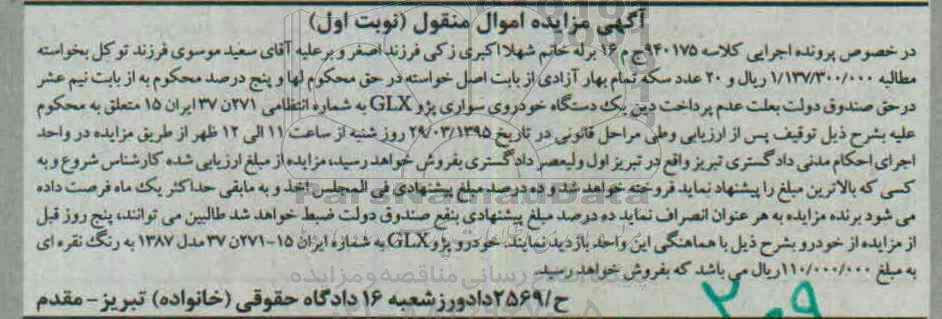 آگهی مزایده اموال منقول (نوبت اول)
در خصوص پرونده اجرایی کلاسه ۹۴۰۱۷۵ج م ۱۶ برله خانم شهلا اکبری زکی فرزند اصغر و بر علیه آقای سعید موسوی فرزند توکل بخواسته
مطالبه ۱/۱۳۷/۳۰۰/۰۰۰ ریال و ۲۰ عدد سکه تمام بهار آزادی از بابت اصل خواسته در حق محکوم لها و پنج درصد محکوم به از بابت نیم عشر
درحق صندوق دولت بعلت عدم پرداخت دین یک دستگاه خودروی سواری پژو GLX به شماره انتظامی ۲۷۱ن ۳۷ ایران ۱۵ متعلق به محکوم
علیه بشرح ذیل توقیف پس از ارزیابی وطی مراحل قانونی در تاریخ ۲۹/۰۳/۱۳۹۵ روز شنبه از ساعت ۱۱ الی ۱۲ ظهر از طریق مزایده در واحد
اجرای احکام مدنی دادگستری تبریز واقع در تبریز اول ولیعصر دادگستری بفروش خواهد رسید، مزایده از مبلغ ارزیابی شده کارشناس شروع و به
کسی که بالاترین مبلغ را پیشنهاد نماید فروخته خواهد شد و ده درصد مبلغ پیشنهادی فی المجلس اخذ و به مابقی حداکثر یک ماه فرصت داده
می شود برنده مزایده به هر عنوان انصراف نماید ده درصد مبلغ پیشنهادی بنفع صندوق دولت ضبط خواهد شد طالبین می توانند، پنج روز قبل
از مزایده از خودرو بشرح ذیل با هماهنگی این واحد بازدید نمایند. خودرو پژوGLX به شماره ایران ۱۵-۲۷۱ن ۳۷ مدل ۱۳۸۷ به رنگ نقره ای
به مبلغ ۱۱۰/۰۰۰/۰۰۰ریال می باشد که بفروش خواهد رسید.
ح/۲۵۶۹دادورز شعبه ۱۶ دادگاه حقوقی (خانواده) تبریز - مقدم
ParsNamadData
رسانی مناقصه و مزایده
۲۰۹